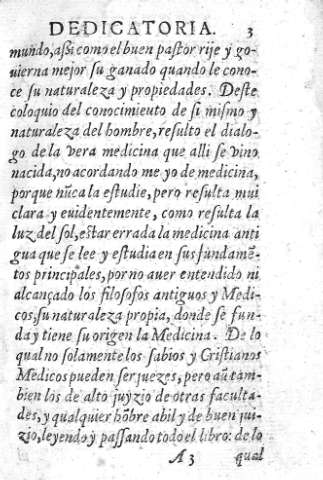 DEDICATORIA. 3
mundo, aſsi como el buen paſtor rije y go-
uierna mejor ſu ganado quando le cono-
ce ſu naturaleza y propiedades. Deſte
coloquio del conocimieuto de ſi miſmo y
naturaleza del hombre, reſulto el dialo-
go de la vera medicina que alli ſe vino
nacida, no acordando me yo de medicina,
porque nũca la eſtudie, pero reſulta mui
clara y euidentemente, como reſulta la
luz del ſol, eſtar errada la medicina anti
gua que ſe lee y eſtudia en sus fundamẽ-
tos principales, por no auer entendido ni
alcançado los filoſofos antiguos y Medi-
cos, ſu naturaleza propia, donde ſe fun-
da y tiene ſu origen la Medicina. De lo
qual no ſolamente los ſabios y Criſtianos
Medicos pueden ſer juezes, pero aũ tam-
bien los de alto juyzio de otras faculta-
des, y qualquier hõbre abil y de buen jui-
zio, leyendo y paſſando todo el libro: de lo
A 3 qual